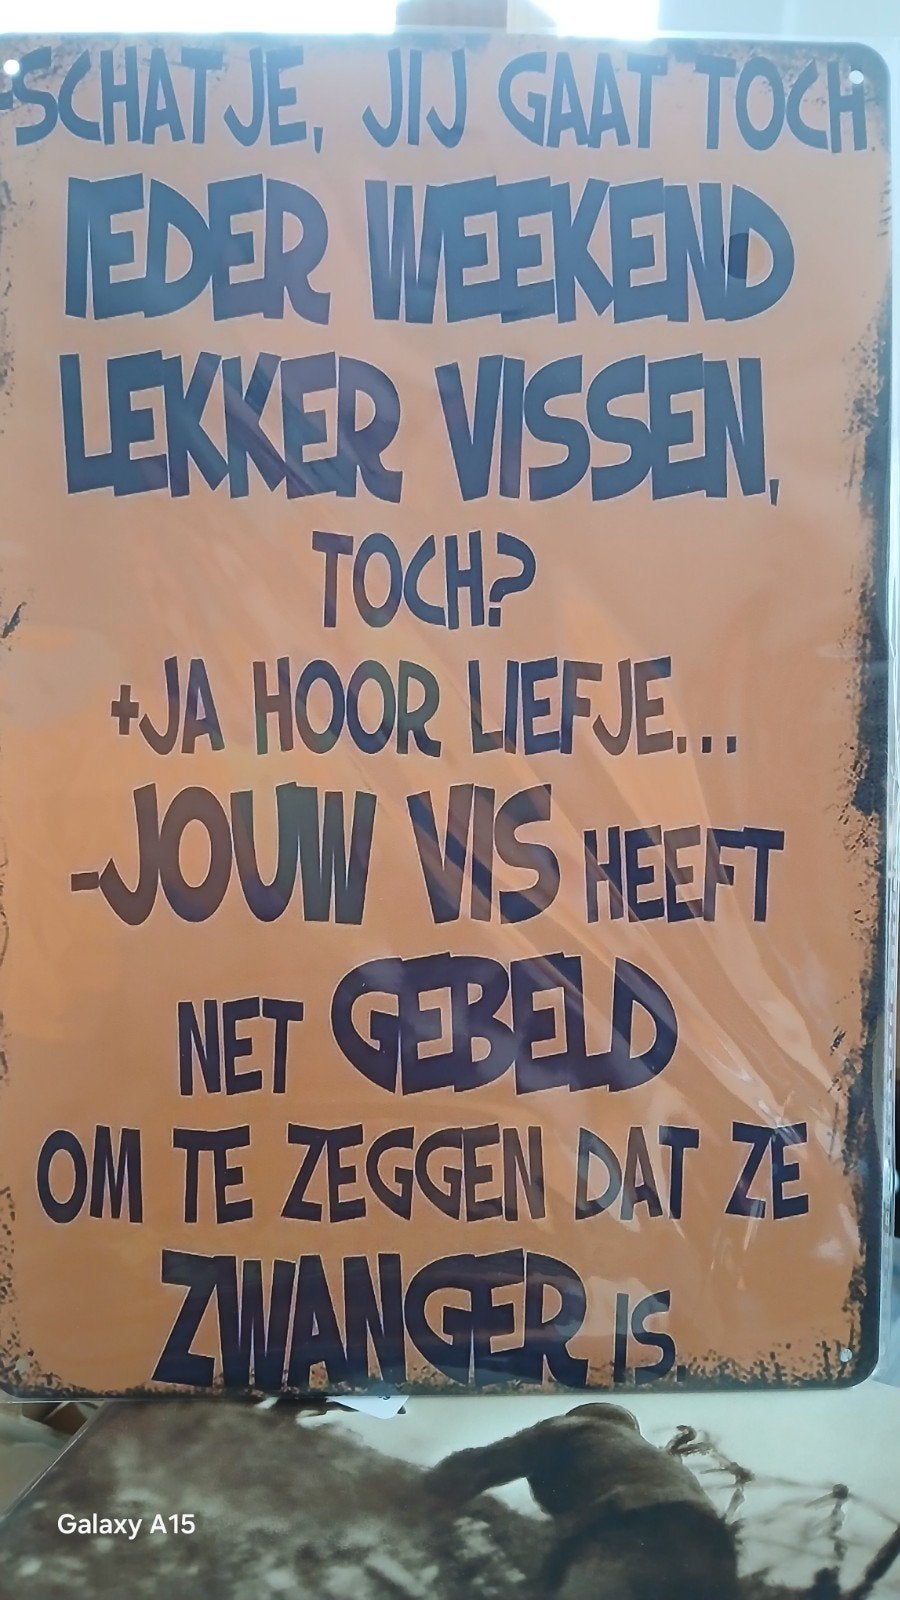 -SCHATJE, JIJ GAAT TOCH
IEDER WEEKEND
LEKKER VISSEN,
TOCH?
+JA HOOR LIEFJE...
-JOUW VIS HEEFT
NET GEBELD
OM TE ZEGGEN DAT ZE
ZWANGER IS.
Galaxy A15